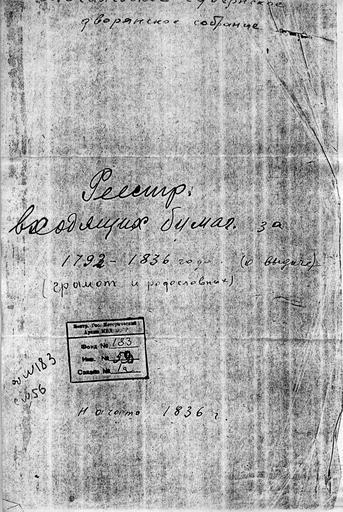 дворянское собрание
Реестр.
входящих бумаг. за
1792-1836 годы. (о выдаче)
(грамот и родословных)
Центр. Гос. Исторический
Архив
Фонд № 183
Инв. №
Связка № 1а
№ 183
№ 56
Начато 1836 г.